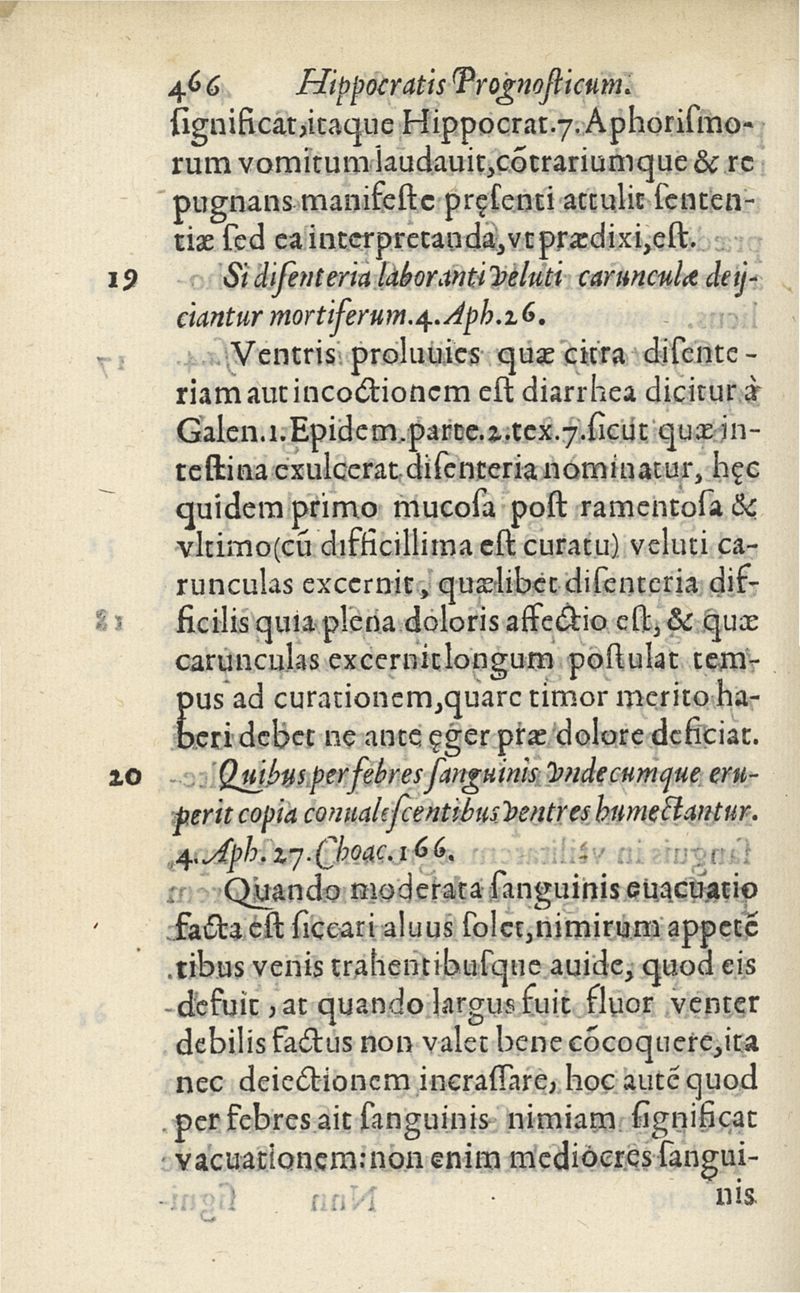 466 Hippocratis Prognosticum.
ſignificat,itaque Hippocrat.7.Aphoriſmo-
rum vomitum laudauit,cōtrariumque & re
pugnans manifeſte pręſenti attulit ſenten-
tiæ ſed ea interpretanda,vt prædixi,eſt.
19 Si diſenteria laboranti veluti carunculæ deij-
ciantur mortiferum.4.Aph.26.
Ventris proluuies quæ citra diſente-
riam aut incoctionem eſt diarrhea dicitur à
Galen.1.Epidem.parte.2.tex.7.ſicut quæ in-
teſtina exulcerat diſenteria nominatur, hęc
quidem primo mucoſa poſt ramentoſa &
vltimo(cū difficillima eſt curatu) veluti ca-
runculas excernit, quælibet diſenteria dif-
ficilis quia plena doloris affectio eſt, & quæ
carunculas excernit longum poſtulat tem-
pus ad curationem,quare timor merito ha-
beri debet ne ante ęger præ dolore deficiat.
20 Quibus per febres ſanguinis vndecumque eru-
perit copia conualeſcentibus ventres humectantur.
4.Aph.27.Choac.166.
Quando moderata ſanguinis euacuatio
facta eſt ſiccari aluus ſolet,nimirum appetē
tibus venis trahentibuſque auide, quod eis
defuit, at quando largus fuit fluor venter
debilis factus non valet bene cōcoquere,ita
nec deiectionem incraſſare, hoc autē quod
per febres ait ſanguinis nimiam ſignificat
vacuationem:non enim mediocres ſangui-
nis